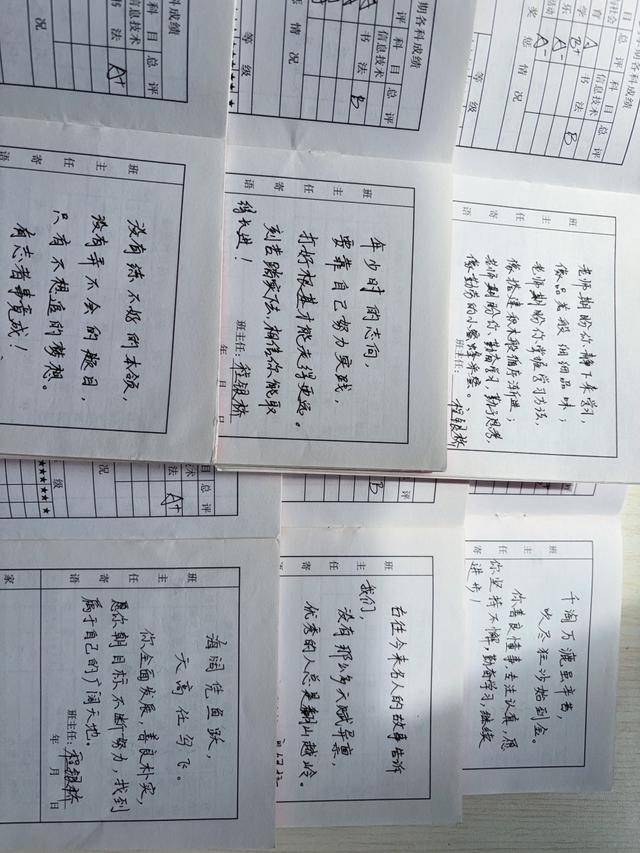 科成绩
科目 总评
信息技术
书法 A+
情况
等级
班主任寄语
没有练不好的本领,
没有弄不会的题目,
只有不想追的梦想。
有志者事竟成!
期各科成绩
科目 总评
信息技术
书法 B
情况
等级
班主任寄语
年少时的志向,
要靠自己努力实践,
打好根基才能走得更远。
刻苦踏实,相信你能取
得长进!
班主任:程银桥
年 月 日
期各科成绩
科目 总评
信息技术
书法 B
奖惩情况
等级
班主任寄语
老师期盼你静下来学习,
像品茗般细细品味;
老师期盼你掌握学习方法,
像搭建积木般循序渐进;
老师期盼你勤奋学习、勤于思考,
像勤劳的小蜜蜂
班主任:程银桥
目 总评
术
法 A+
级
★★★★★
班主任寄语
家
海阔凭鱼跃,
天高任鸟飞。
你全面发展,善良朴实,
愿你朝目标不断努力,找到
属于自己的广阔天地。
班主任:程银桥
年 月 日
总评
B
班主任寄语
古往今来名人的故事告诉
我们,
没有那么多天赋异禀,
优秀的人总是翻山越岭。
班主任寄
千淘万漉虽辛苦,
吹尽狂沙始到金。
你善良懂事、专注认真,愿
你坚持不懈,勤奋学习,继续
进步!